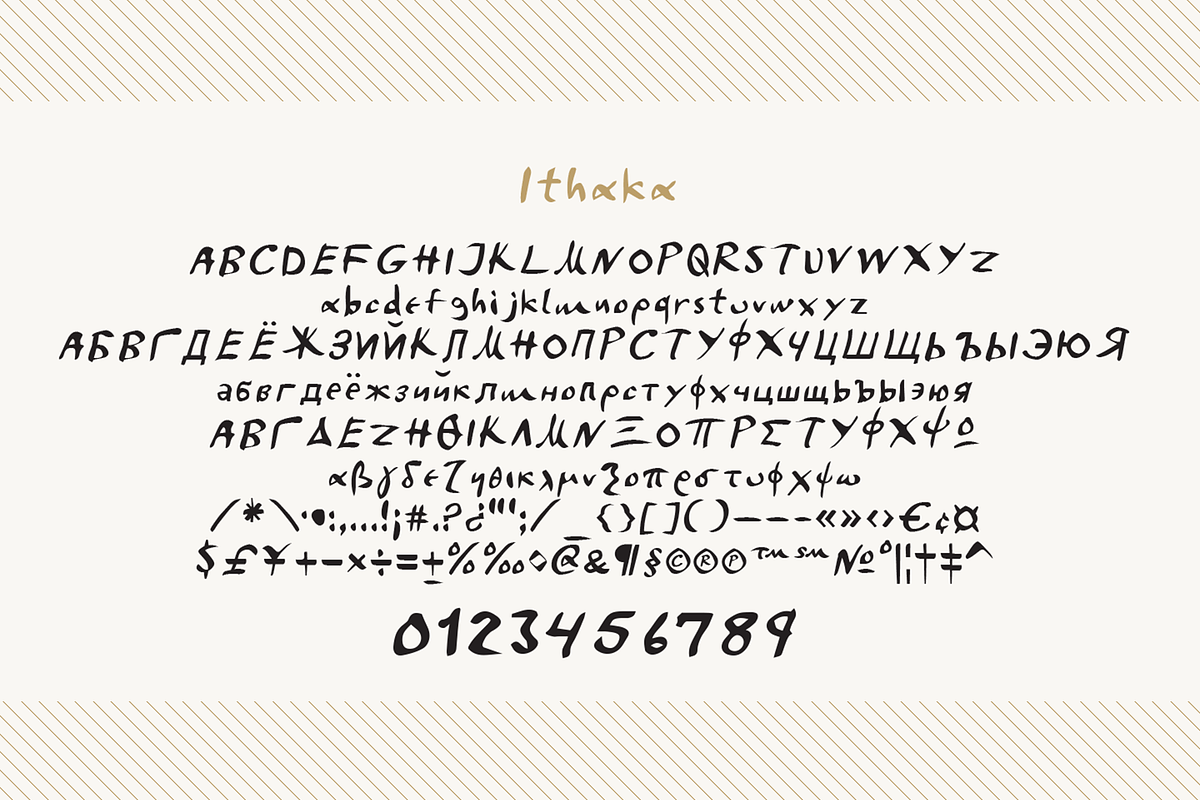 Ithaka
ABCDEFGHIJKLMNOPQRSTUVWXYZ
abcdefghijklmnopqrstuvwxyz
АБВГДЕЁЖЗИЙКЛМНОПРСТУФХЧЦШЩЬЪЫЭЮЯ
абвгдеёжзийклмнопрстуфхчцшщьъыэюя
ΑΒΓΔΕΖΗΘΙΚΛΜΝΞΟΠΡΣΤΥΦΧΨΩ
αβγδεζηθικλμνξοπρστυφχψω
/*\·•:,...!¡#.?¿"';/_{}[]()—–-«»‹›€¢¤
$£¥+−×÷=±%‰◊@&¶§©®℗™℠№°|¦†‡^
0123456789